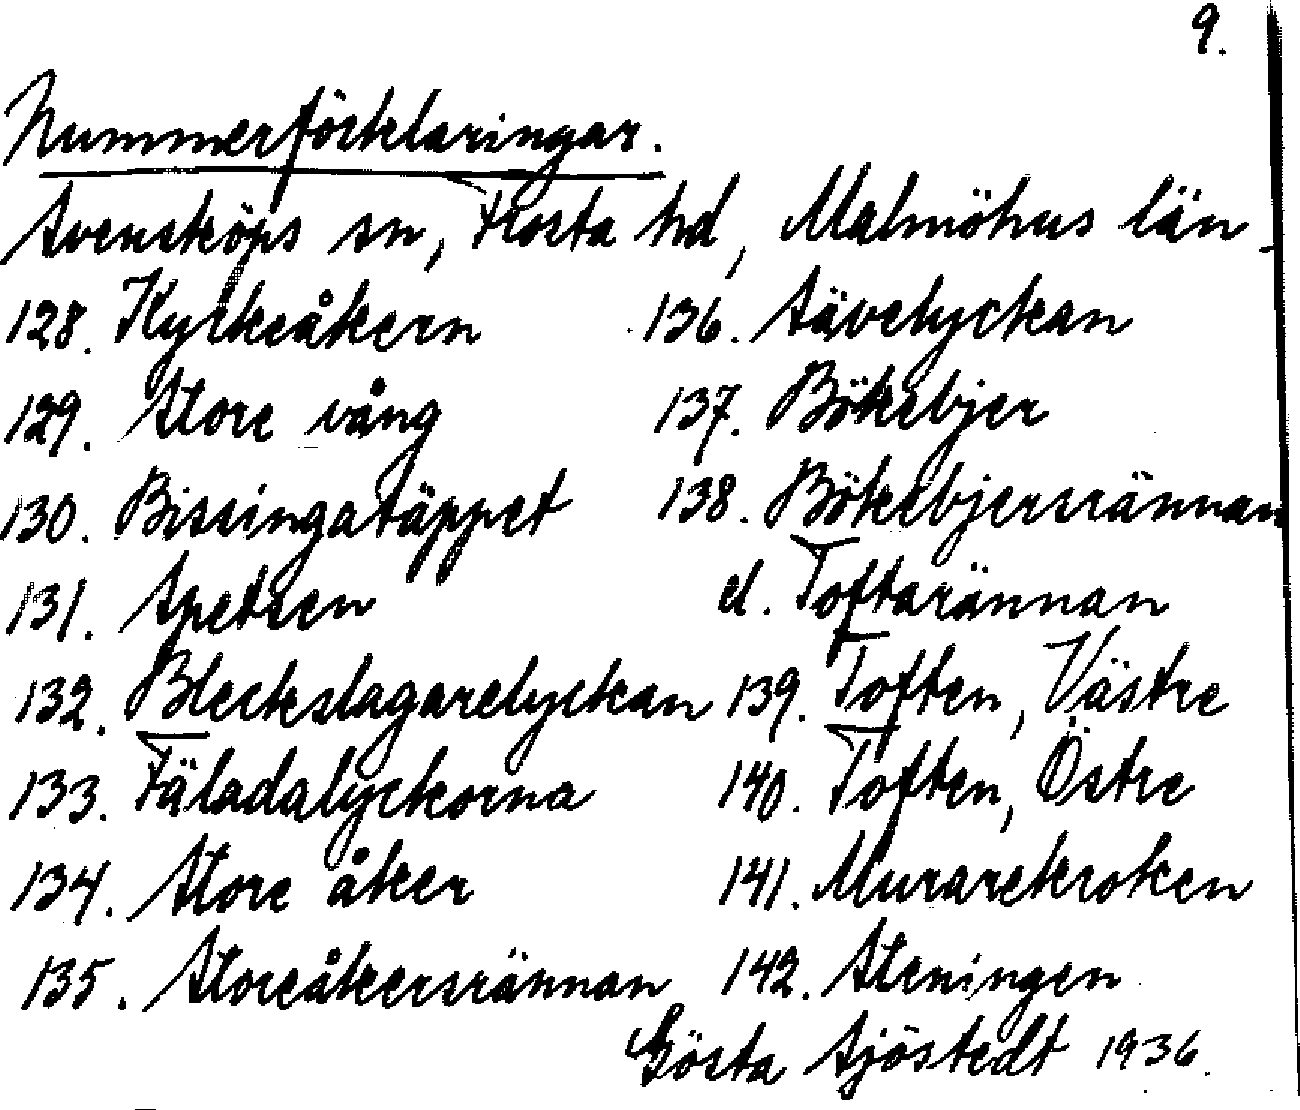 9.
Nummerförklaringar.
Svensköps sn, Frosta hd, Malmöhus län
128. Kyrkeåkern
129. Store vång
130. Bissingatäppet
131. Spetsen
132. Bleckslagarelyckan
133. Fäladalyckorna
134. Store åker
135. Storeåkersrännan
136. Sävelyckan
137. Bökebjer
138. Bökebjersrännan
el. Toftarännan
139. Toften, Västre
140. Toften, Östre
141. Murarekroken
142. Steningen
Gösta Sjöstedt 1936.